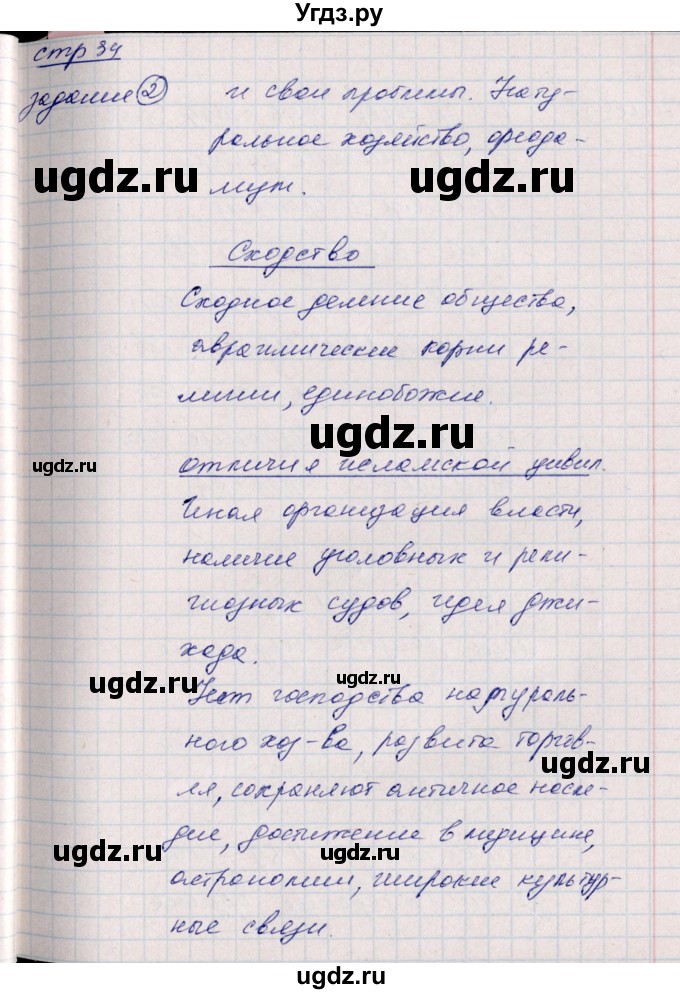 Угдз.ру
стр 34
задание 2 и свои проблемы. Нату-
ральное хозяйство, феода-
лизм.
ugdz.ru ugdz.ru
Сходство
Сходное деление общества,
авраамические корни ре-
лигии, единобожие.
ugdz.ru
ugdz.ru
отличия исламской цивил.
Иная организация власти,
наличие уголовных и рели-
гиозных судов, идея джи-
хада.
ugdz.ru ugdz.ru
Нет господства натураль-
ного хоз-ва, развита торгов-
ля, сохраняют античное насле-
ugdz.ru
дие, достижение в медицине,
ugdz.ru ugdz.ru
астрономии, широкие культур-
ные связи.
ugdz.ru